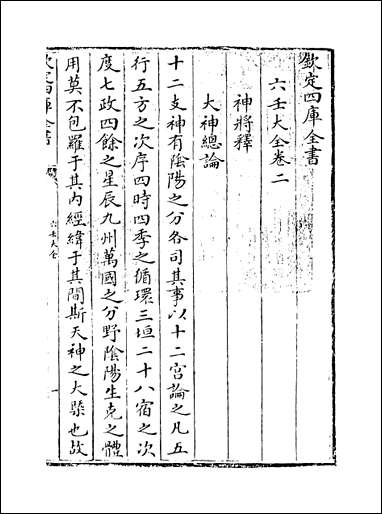 欽定四庫全書
六壬大全卷二
神將釋
大神總論
十二支神有陰陽之分各司其事以十二宫論之凡五
行五方之次序四時四季之循環三垣二十八宿之次
度七政四餘之星辰九州萬國之分野陰陽生克之體
用莫不包羅于其内經緯于其間斯天神之大槩也故
欽定四庫全書
六壬大全
一